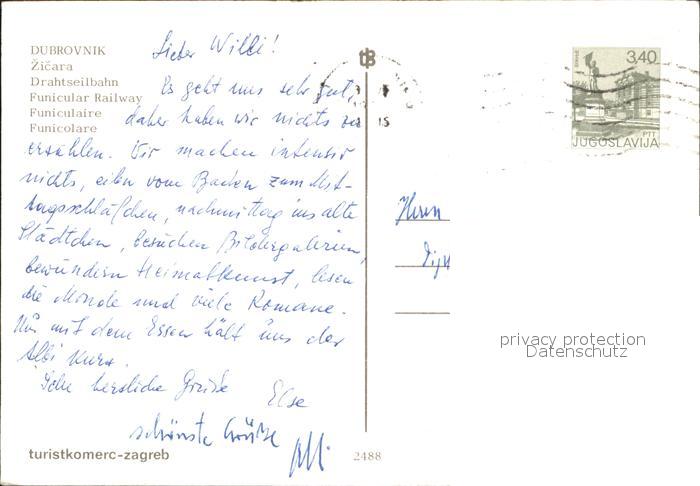 DUBROVNIK
Žičara
Drahtseilbahn
Funicular Railway
Funiculaire
Funicolare
Lieber Willi!
Es geht uns sehr gut,
daher haben wir nichts zu
erzählen. Wir machen intensiv
nichts, eilen vom Baden zum Mit-
tagsschläfchen, nachmittag ins alte
Städtchen, besuchen Bildergalerien,
bewundern Heimatkunst, lesen
die Monde und viele Romane.
Nur mit dem Essen hält uns der
Albi kurz.
Sehr herzliche Grüße
Else
schönste Grüße
turistkomerc-zagreb
2488
tb
3,40
PTT
JUGOSLAVIJA
Herrn
privacy protection
Datenschutz